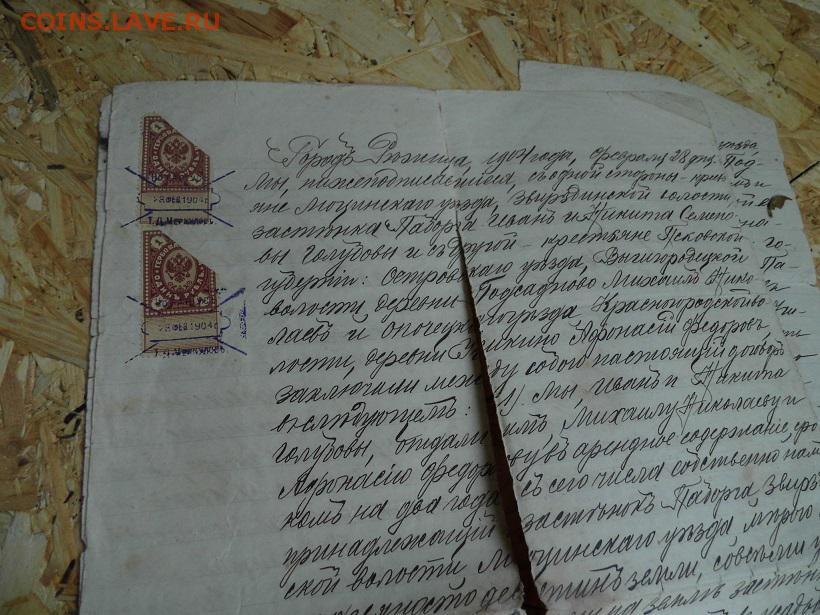 COINS.LAVE.RU
28 ФЕВ 1904
28 ФЕВ 1904
Городъ Рѣжица, 1904 года, Февраля 28 дня.
Мы, нижеподписавшіеся, съ одной стороны - кресть
яне Люцинскаго уѣзда, Звирздинской волости,
застѣнка Паборга Иванъ и Никита Семено
вы Голубовы и съ другой - крестьяне Псковской
губерніи: Островскаго уѣзда, Вышгородецкой
волости, деревни Подсадново Михаилъ Нико
лаевъ и Опочецкаго уѣзда Красногородской во
лости, деревни Афонасій Федоровъ
заключили между собою настоящій договоръ
въ слѣдующемъ: 1) Мы, Иванъ и Никита
Голубовы, отдали имъ, Михаилу Николаеву и
Афонасію Федорову въ арендное содержаніе сро
комъ на два года съ сего числа собственно намъ
принадлежащій застѣнокъ Паборга, Звирз
ской волости Люцинскаго уѣзда мѣрою
десятинъ земли, совсѣми